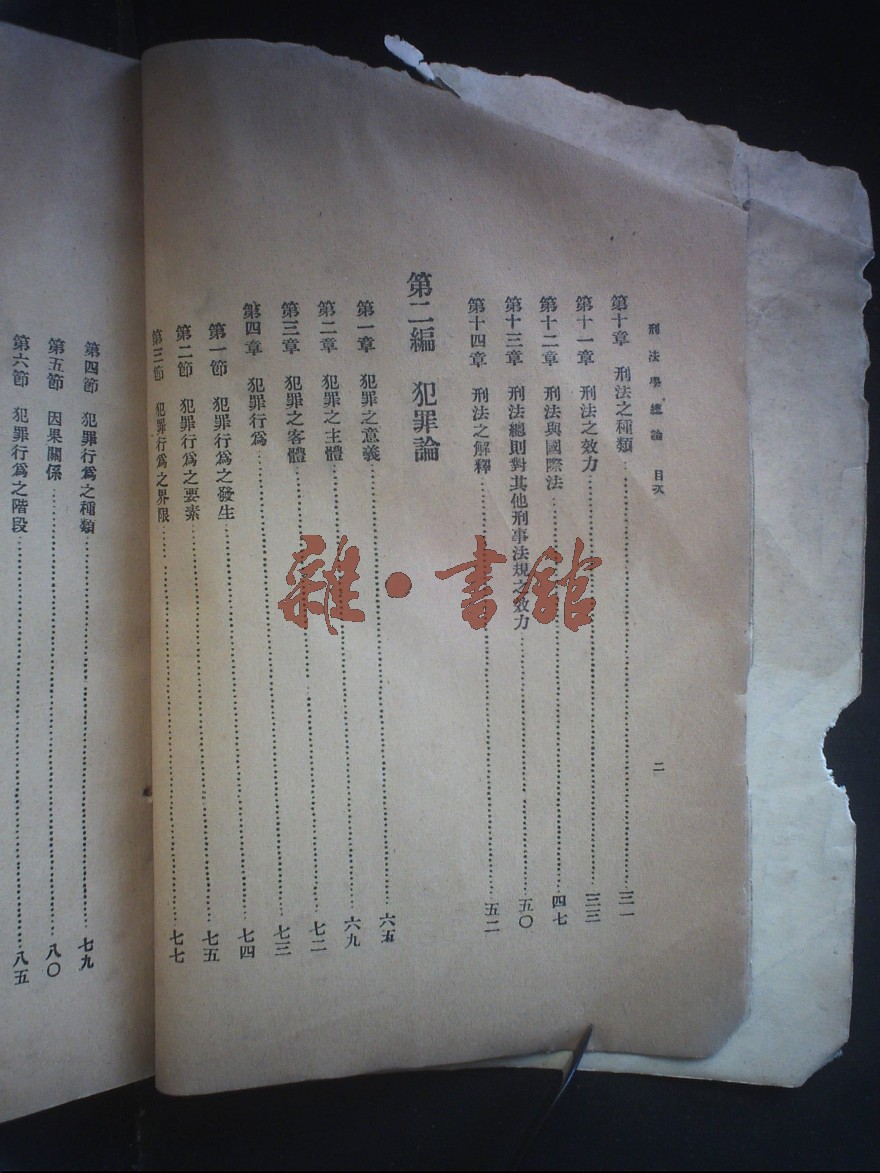 刑法學總論　目次　二
第十章　刑法之種類……三一
第十一章　刑法之效力……三三
第十二章　刑法與國際法……四七
第十三章　刑法總則對其他刑事法規之效力……五〇
第十四章　刑法之解釋……五二
第二編　犯罪論
第一章　犯罪之意義……六五
第二章　犯罪之主體……六九
第三章　犯罪之客體……七二
第四章　犯罪行爲……七三
第一節　犯罪行爲之發生……七四
第二節　犯罪行爲之要素……七五
第三節　犯罪行爲之界限……七七
第四節　犯罪行爲之種類……七九
第五節　因果關係……八〇
第六節　犯罪行爲之階段……八五
雜·書館